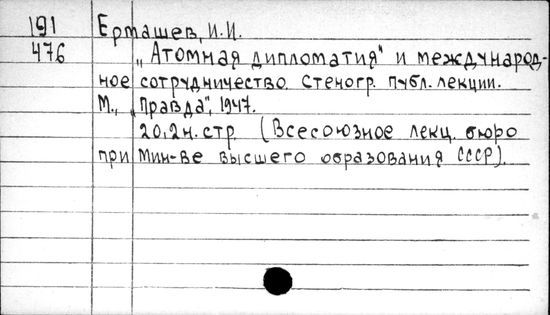 191 Ермашев, И.И.
476 „Атомная дипломатия" и международ-
ное сотрудничество. Стеногр. публ. лекции.
М., „Правда", 1947.
20,2н. стр. (Всесоюзное лекц. бюро
при Мин-ве высшего образования СССР).